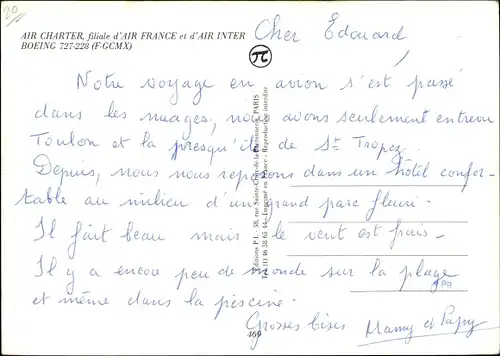 20
AIR CHARTER, filiale d'AIR FRANCE et d'AIR INTER
BOEING 727-228 (F-GCMX)
Cher Édouard,
Notre voyage en avion s'est passé
dans les nuages, nous avons seulement entrevu
Toulon et la presqu'île de St Tropez.
Depuis, nous nous reposons dans un hôtel confor-
table au milieu d'un grand parc fleuri.
Il fait beau mais le vent est frais.
Il y a encore peu de monde sur la plage
et même dans la piscine.
Grosses bises
Mamy et Papy
Editions P.I. - 38, rue Sainte-Croix-de-la-Bretonnerie, PARIS
Tél. (1) 48 28 63 44 - Imprimé en France - Reproduction interdite
469